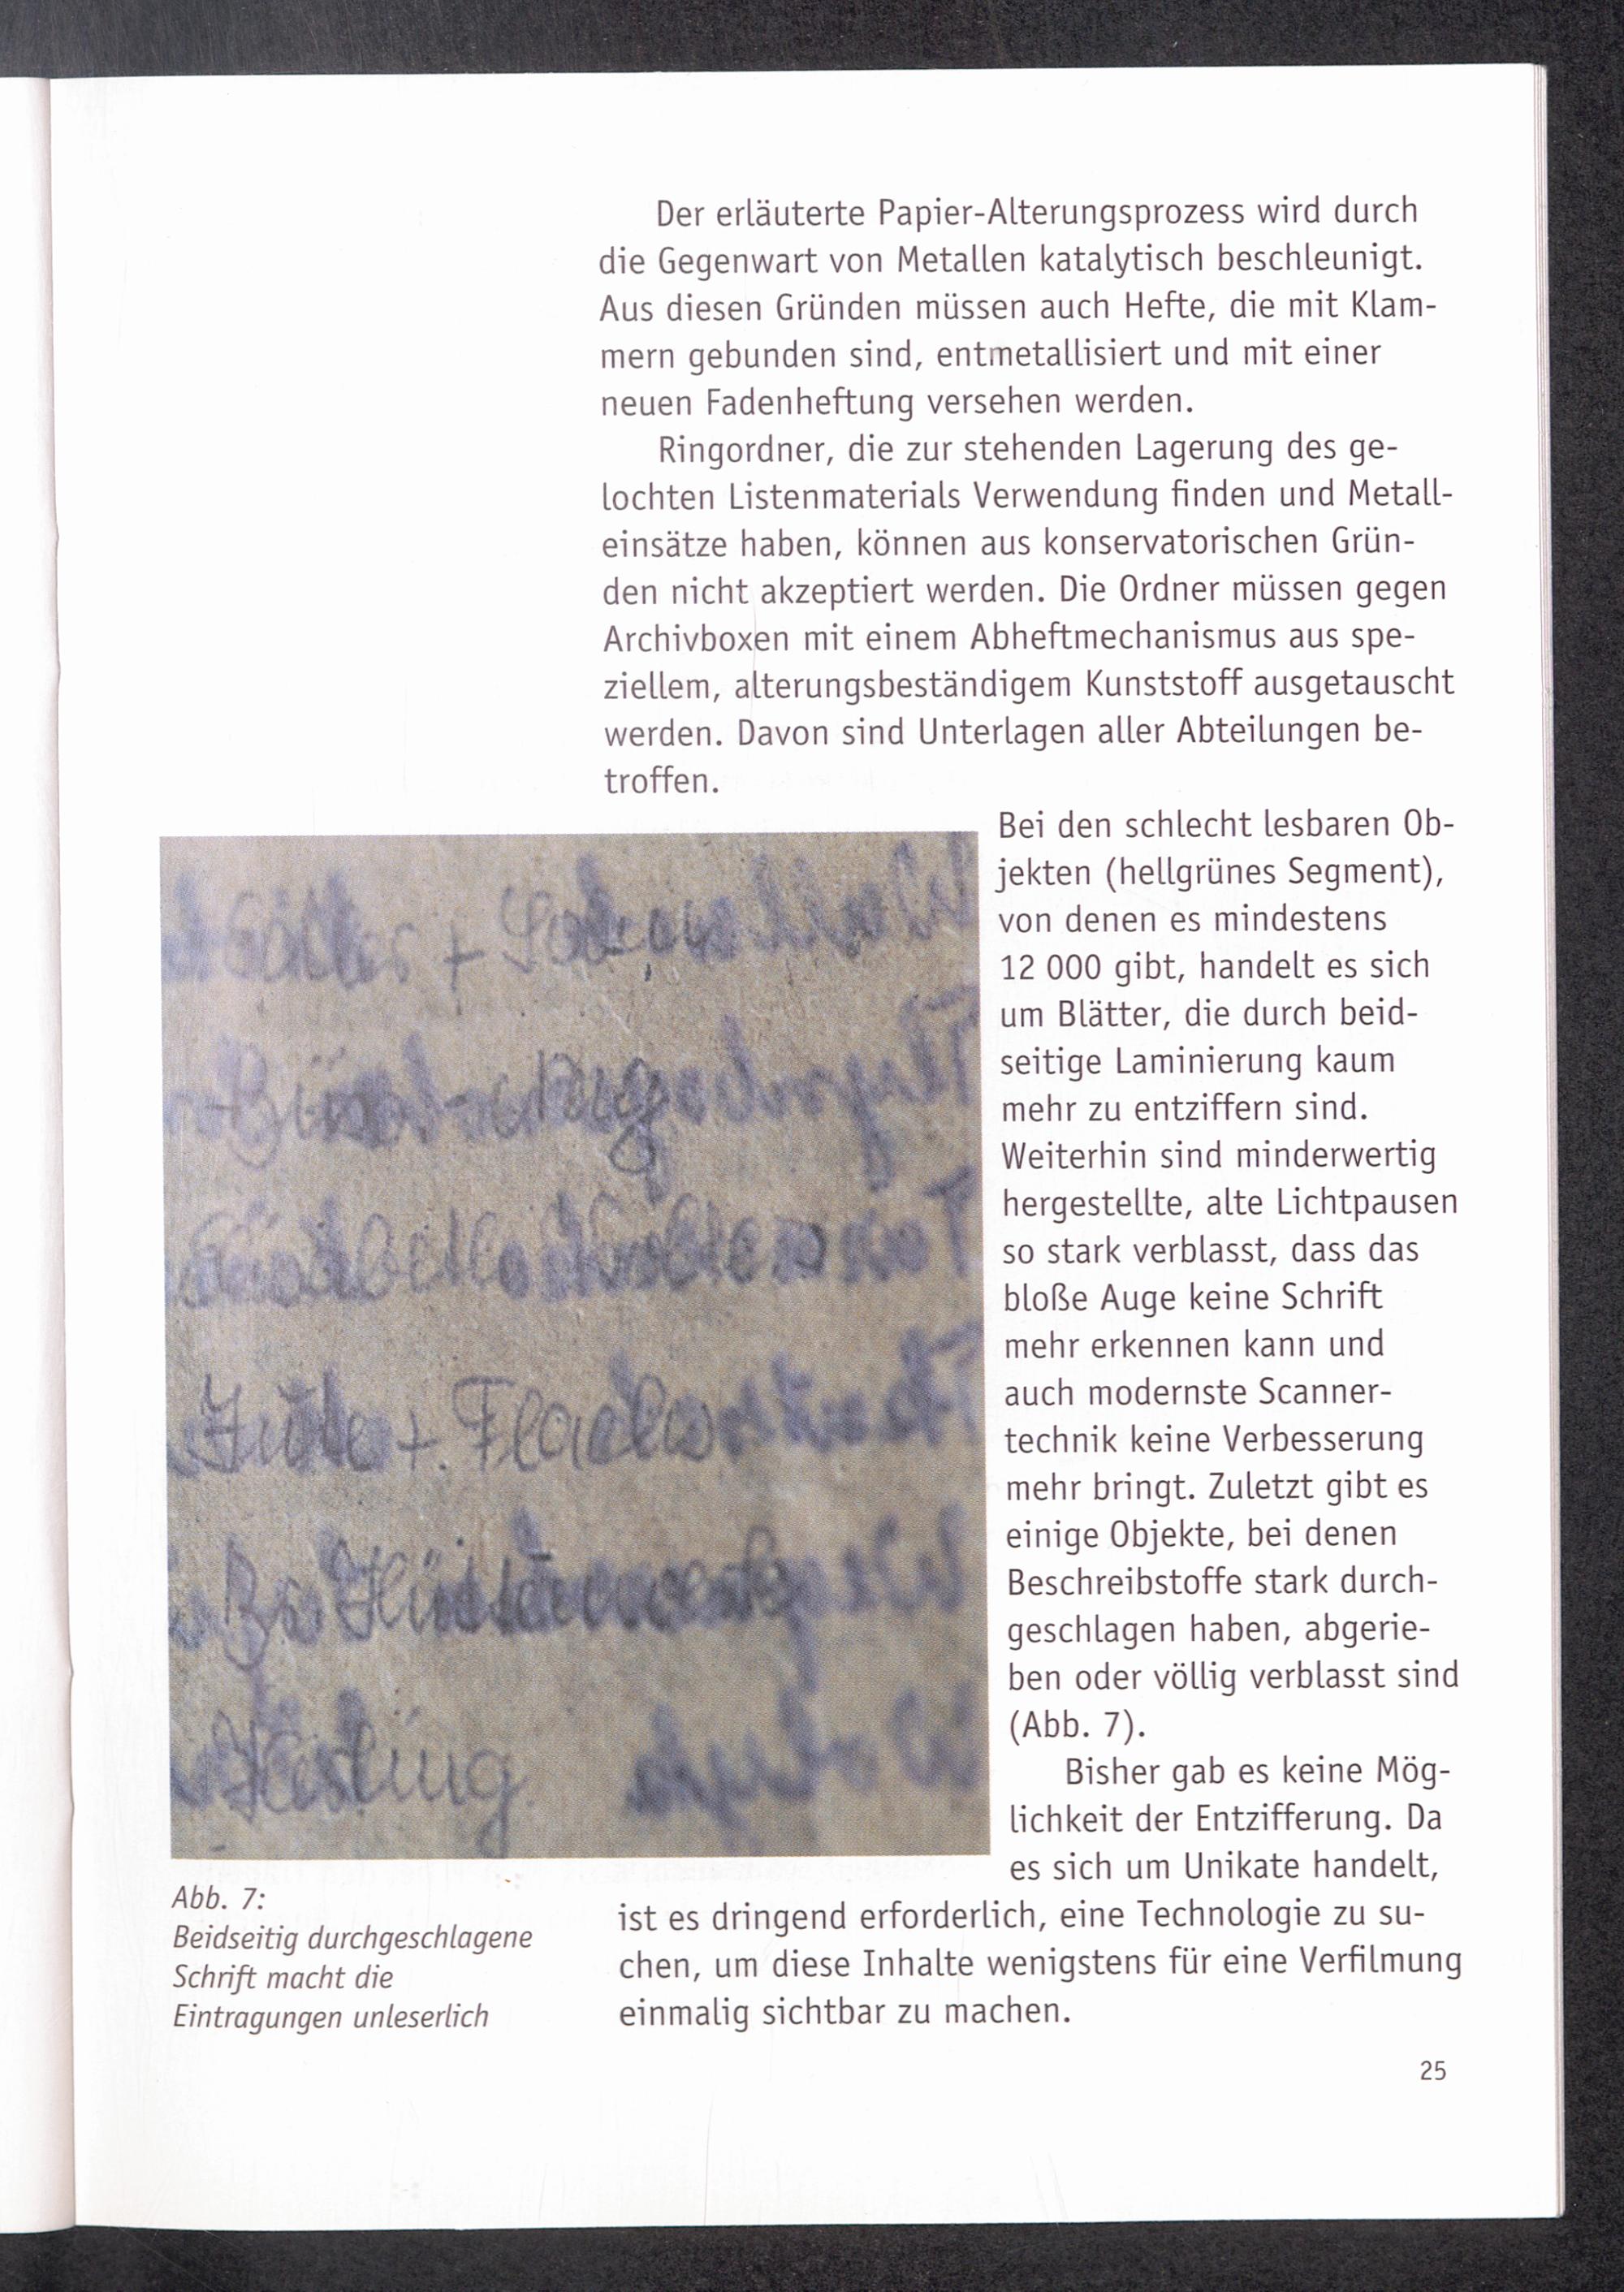 Der erläuterte Papier-Alterungsprozess wird durch
die Gegenwart von Metallen katalytisch beschleunigt.
Aus diesen Gründen müssen auch Hefte, die mit Klam-
mern gebunden sind, entmetallisiert und mit einer
neuen Fadenheftung versehen werden.
Ringordner, die zur stehenden Lagerung des ge-
lochten Listenmaterials Verwendung finden und Metall-
einsätze haben, können aus konservatorischen Grün-
den nicht akzeptiert werden. Die Ordner müssen gegen
Archivboxen mit einem Abheftmechanismus aus spe-
ziellem, alterungsbeständigem Kunststoff ausgetauscht
werden. Davon sind Unterlagen aller Abteilungen be-
troffen.
Bei den schlecht lesbaren Ob-
jekten (hellgrünes Segment),
von denen es mindestens
12 000 gibt, handelt es sich
um Blätter, die durch beid-
seitige Laminierung kaum
mehr zu entziffern sind.
Weiterhin sind minderwertig
hergestellte, alte Lichtpausen
so stark verblasst, dass das
bloße Auge keine Schrift
mehr erkennen kann und
auch modernste Scanner-
technik keine Verbesserung
mehr bringt. Zuletzt gibt es
einige Objekte, bei denen
Beschreibstoffe stark durch-
geschlagen haben, abgerie-
ben oder völlig verblasst sind
(Abb. 7).
Bisher gab es keine Mög-
lichkeit der Entzifferung. Da
es sich um Unikate handelt,
ist es dringend erforderlich, eine Technologie zu su-
chen, um diese Inhalte wenigstens für eine Verfilmung
einmalig sichtbar zu machen.
Jute + Flachs
Abb. 7:
Beidseitig durchgeschlagene
Schrift macht die
Eintragungen unleserlich
25